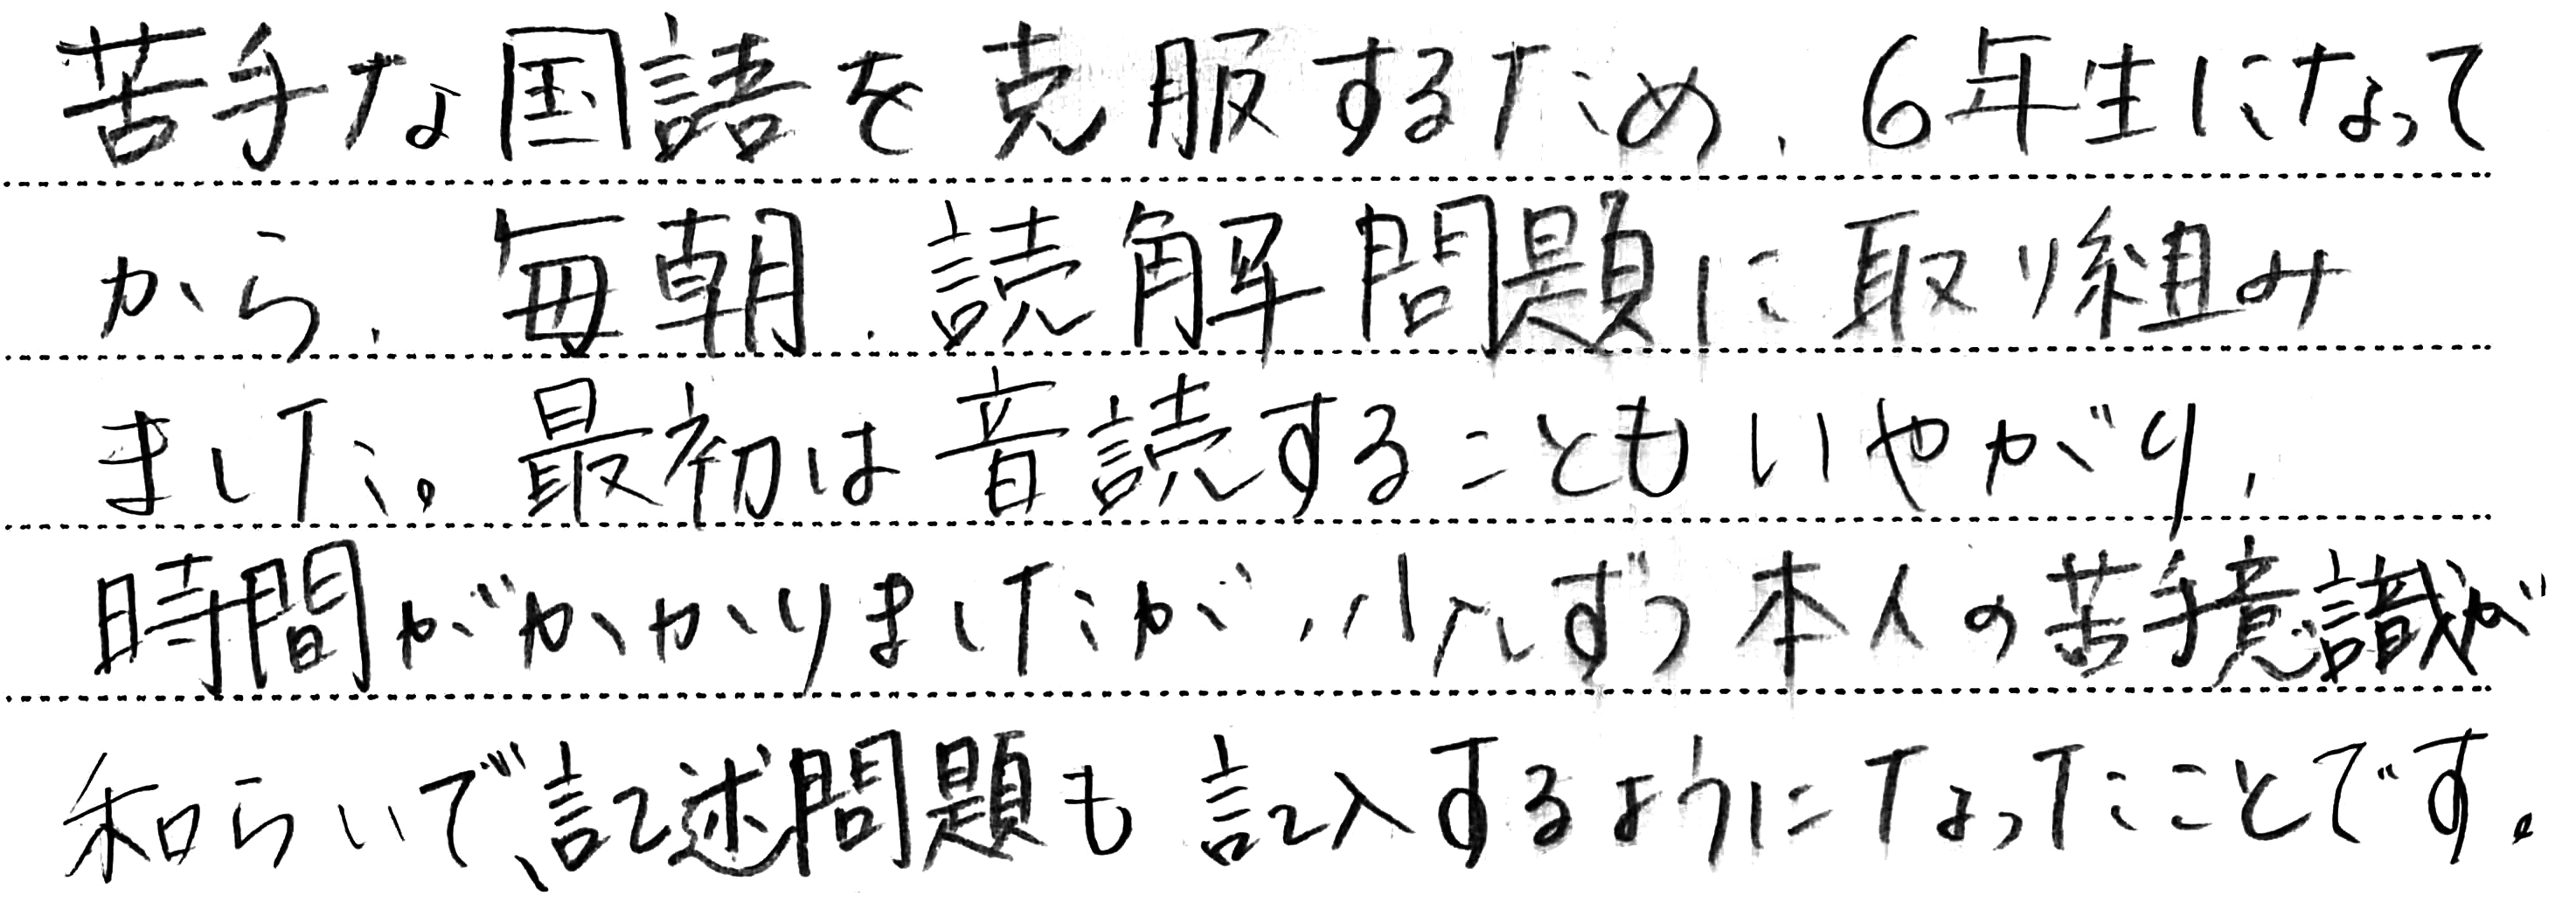 苦手な国語を克服するため、6年生になって
から、毎朝、読解問題に取り組み
ました。最初は音読することもいやがり、
時間がかかりましたが、少しずつ本人の苦手意識が
和らいで、記述問題も記入するようになったことです。